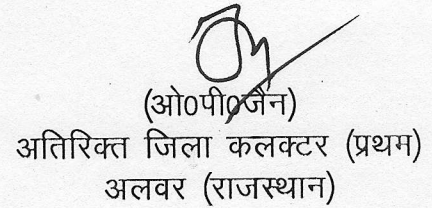 (ओ0पी0जैन)
अतिरिक्त जिला कलक्टर (प्रथम)
अलवर (राजस्थान)